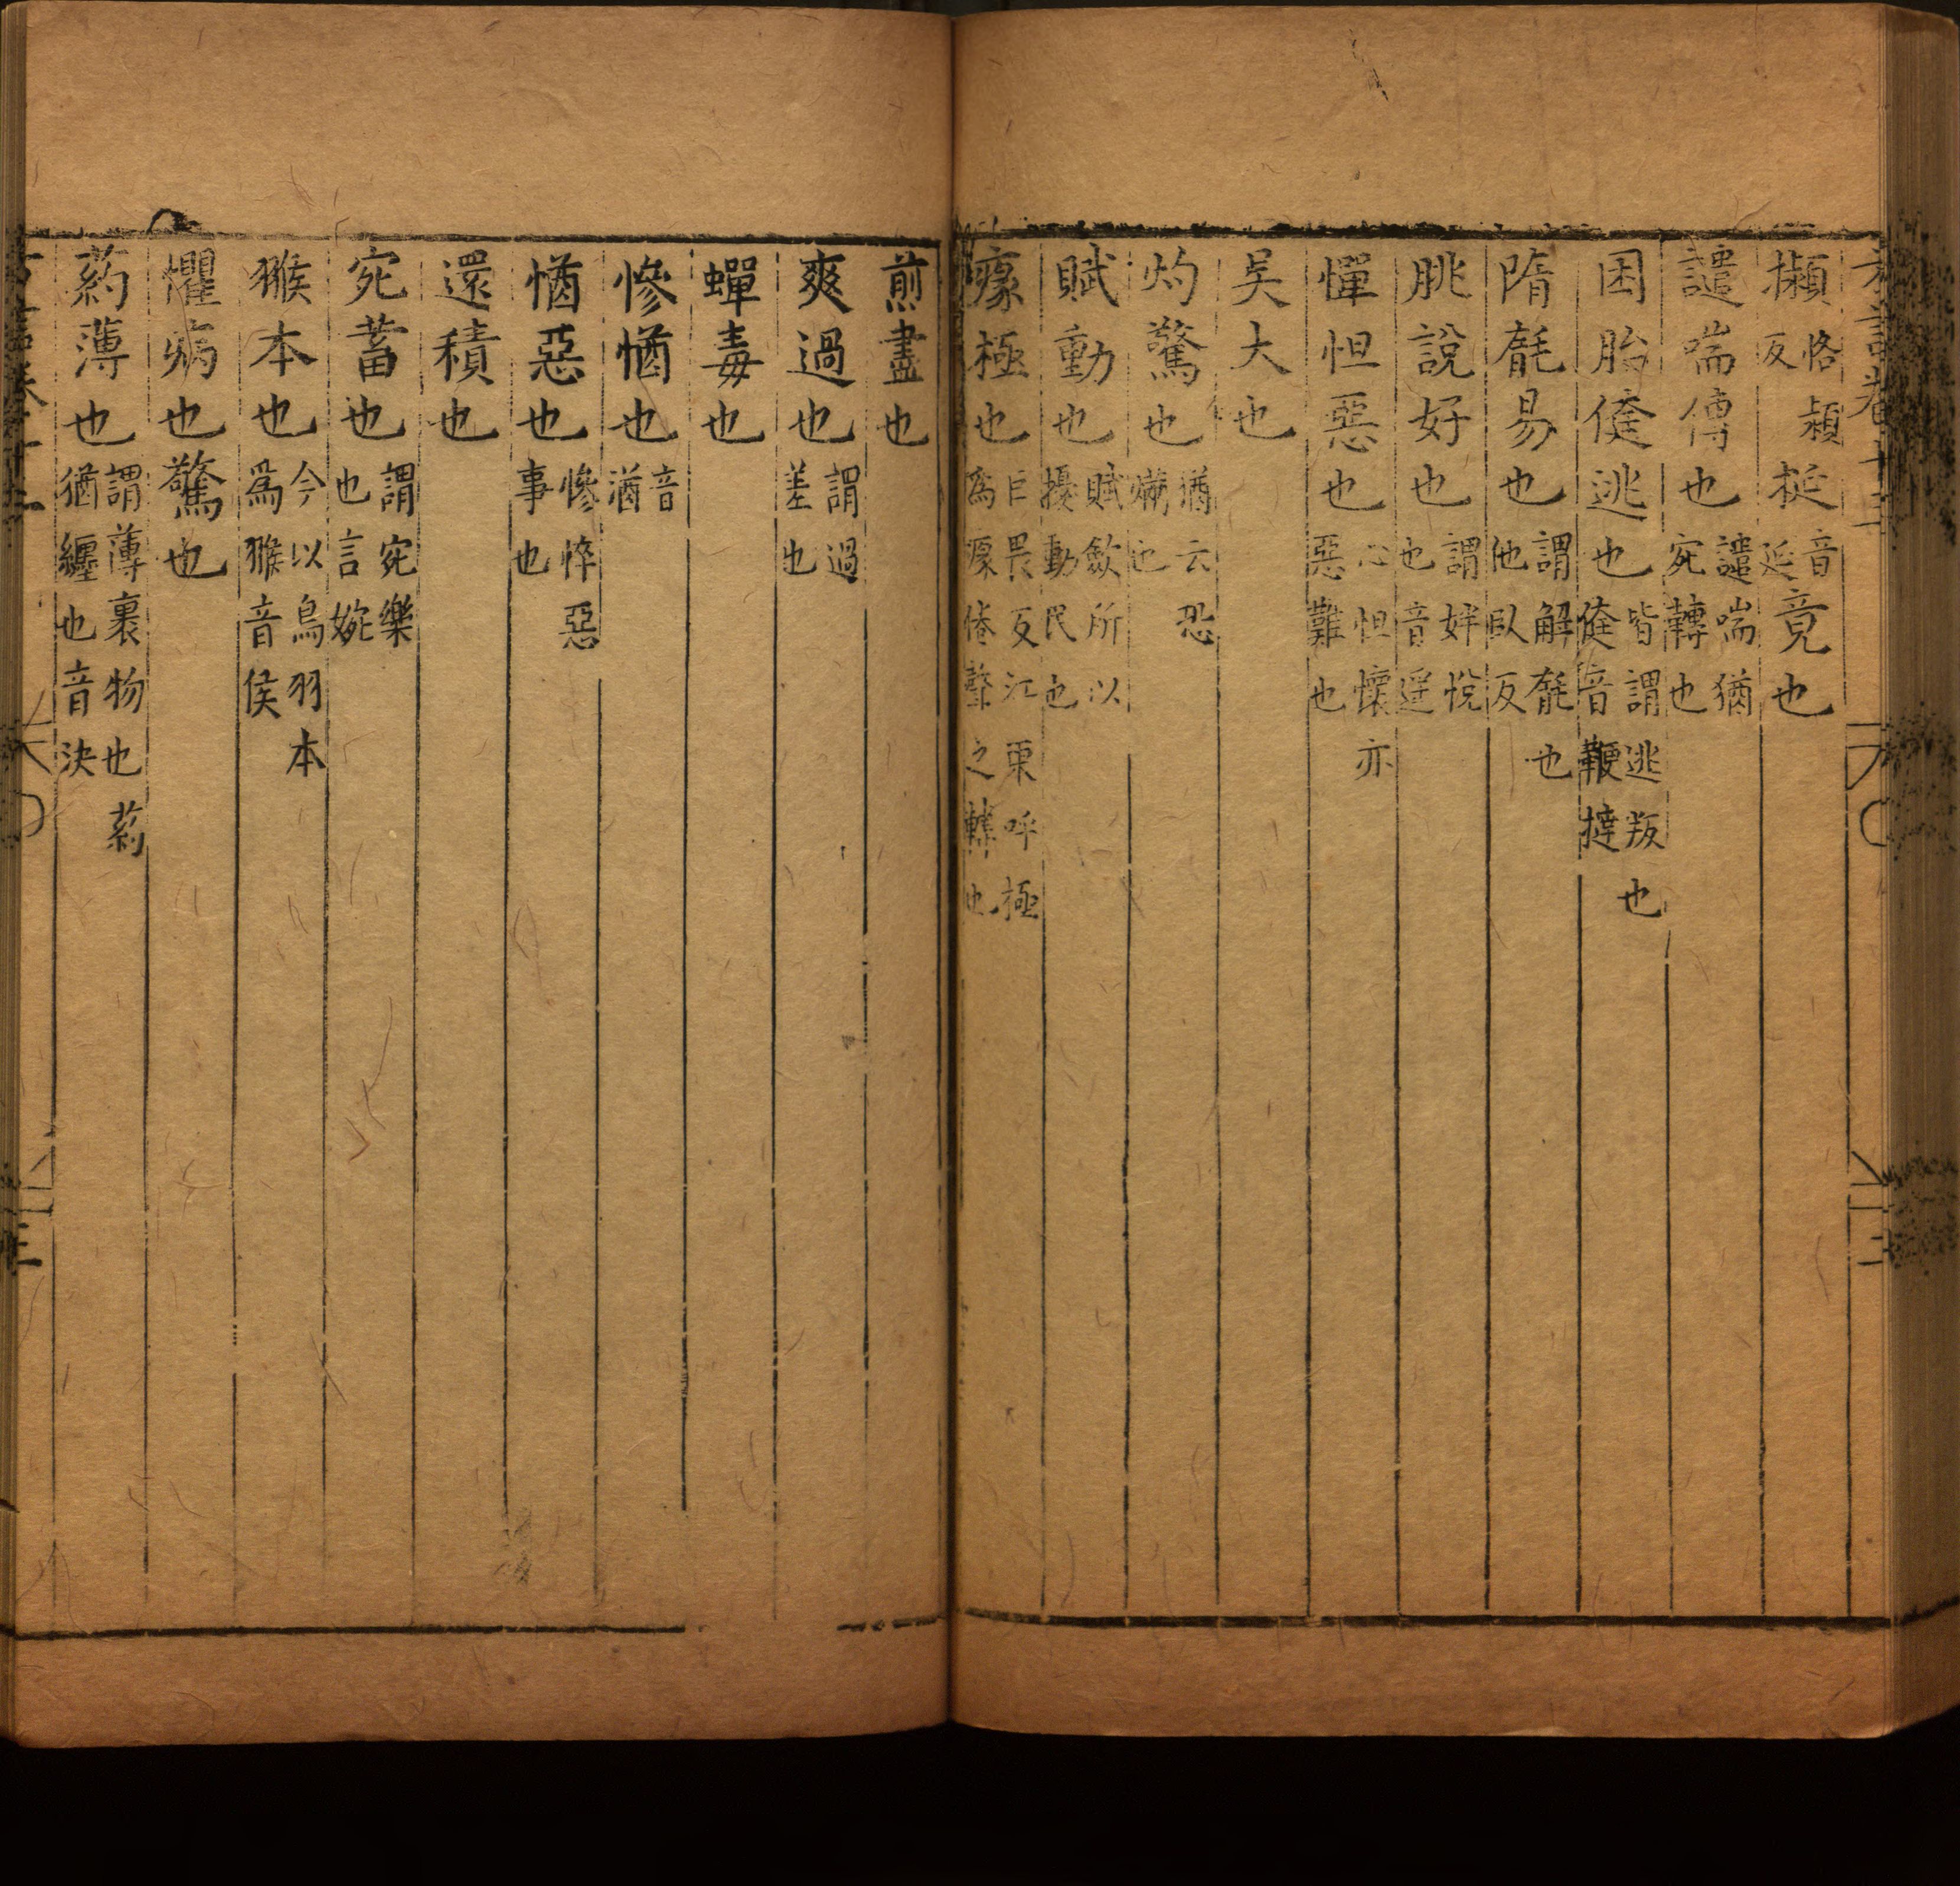 攋恪穎反挺音延竟也
譴喘傳也譴喘猶宛轉也
困胎倢逃也皆謂逃叛也倢音鞭撻
隋毻易也謂解毻也他臥反
朓說好也謂姅悅也音遥
憚怛惡也心怛懷亦惡難也
吳大也
灼驚也猶云恐㷶也
賦動也賦斂所以擾動民也
瘃極也巨畏反江東呼極為瘃倦聲之轉也
煎盡也
爽過也謂過差也
蟬毒也
慘㥢也音湭
㥢惡也慘悴惡事也
還積也
宛蓄也謂宛樂也言婉
猴本也今以鳥羽本為猴音侯
懼病也驚也
葯薄也謂薄裏物也葯猶纏也音決